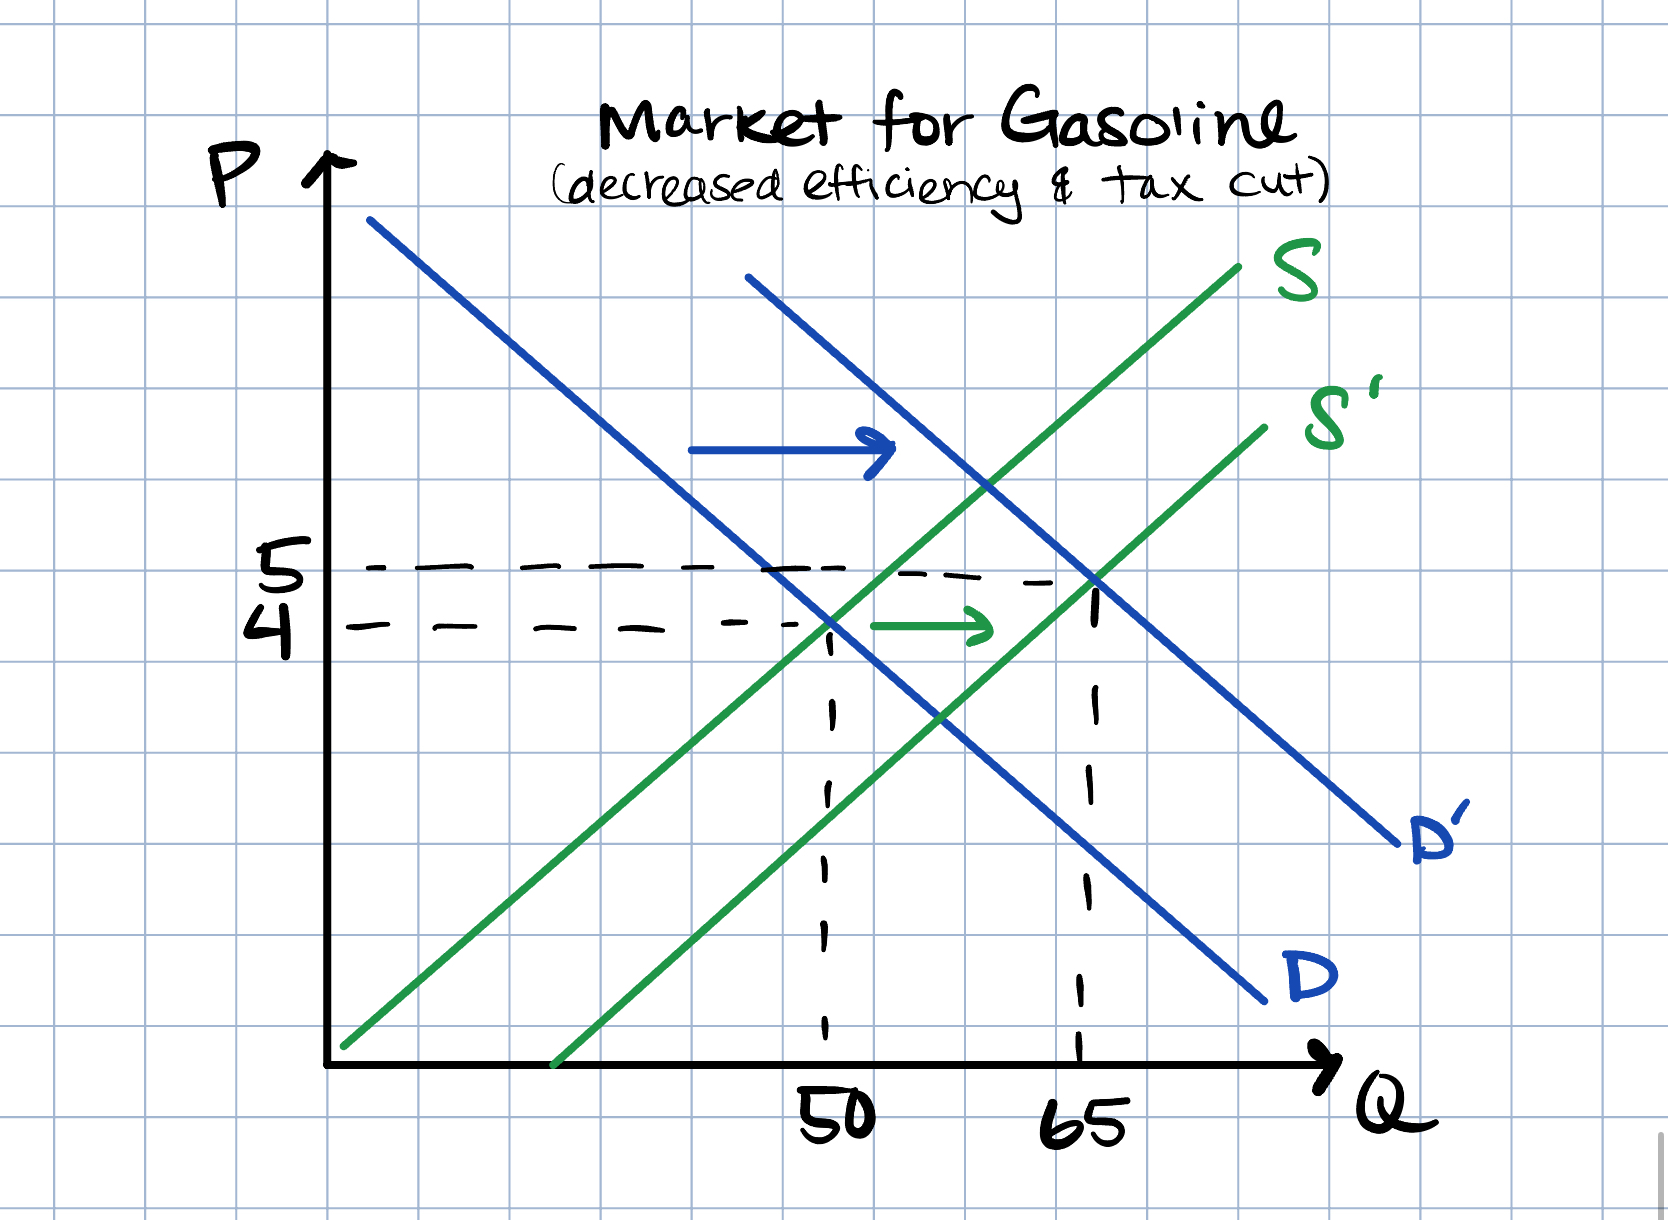 Market for Gasoline
(decreased efficiency & tax cut)
P
S
S'
5
4
D'
D
50
65
Q